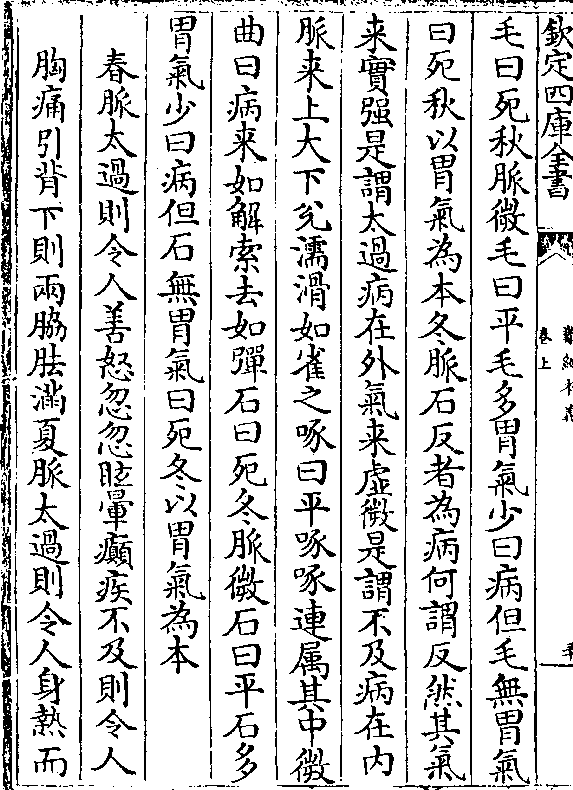 欽定四庫全書
難經本義
卷上
毛曰死秋脈微毛曰平毛多胃氣少曰病但毛無胃氣
曰死秋以胃氣為本冬脈石反者為病何謂反然其氣
来實强是謂太過病在外氣来虛微是謂不及病在内
脈来上大下兊濡滑如雀之啄曰平啄啄連属其中微
曲曰病来如解索去如彈石曰死冬脈微石曰平石多
胃氣少曰病但石無胃氣曰死冬以胃氣為本
春脈太過則令人善怒忽忽眩暈癲疾不及則令人
胸痛引背下則兩脇胠滿夏脈太過則令人身熱而